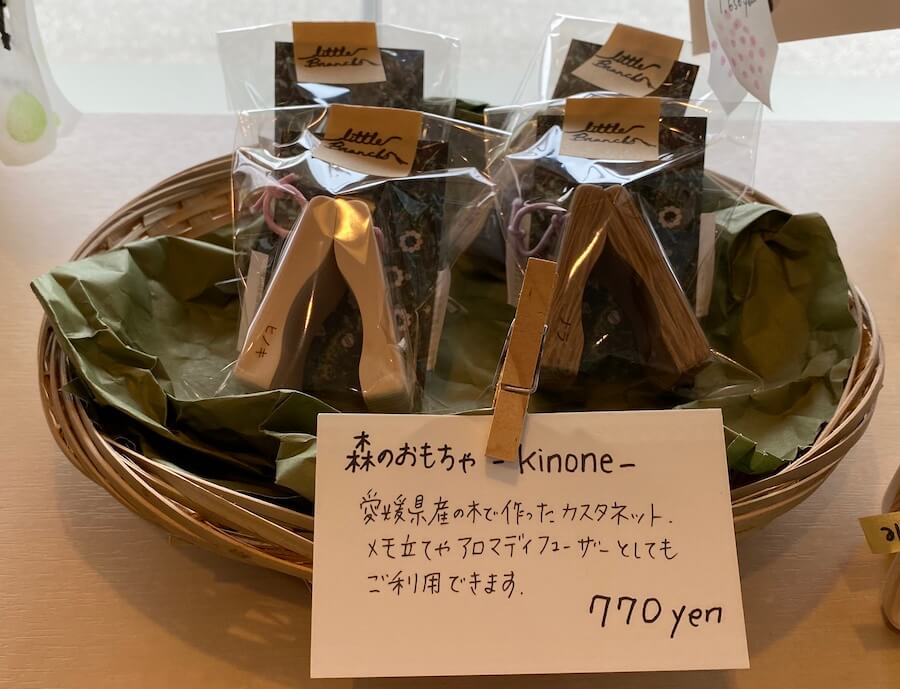 little
Branch
little
Branch
little
Branch
little
Branch
ヒノキ
森のおもちゃ - kinone -
愛媛県産の木で作ったカスタネット.
メモ立てやアロマディフューザーとしても
ご利用できます.
770 yen